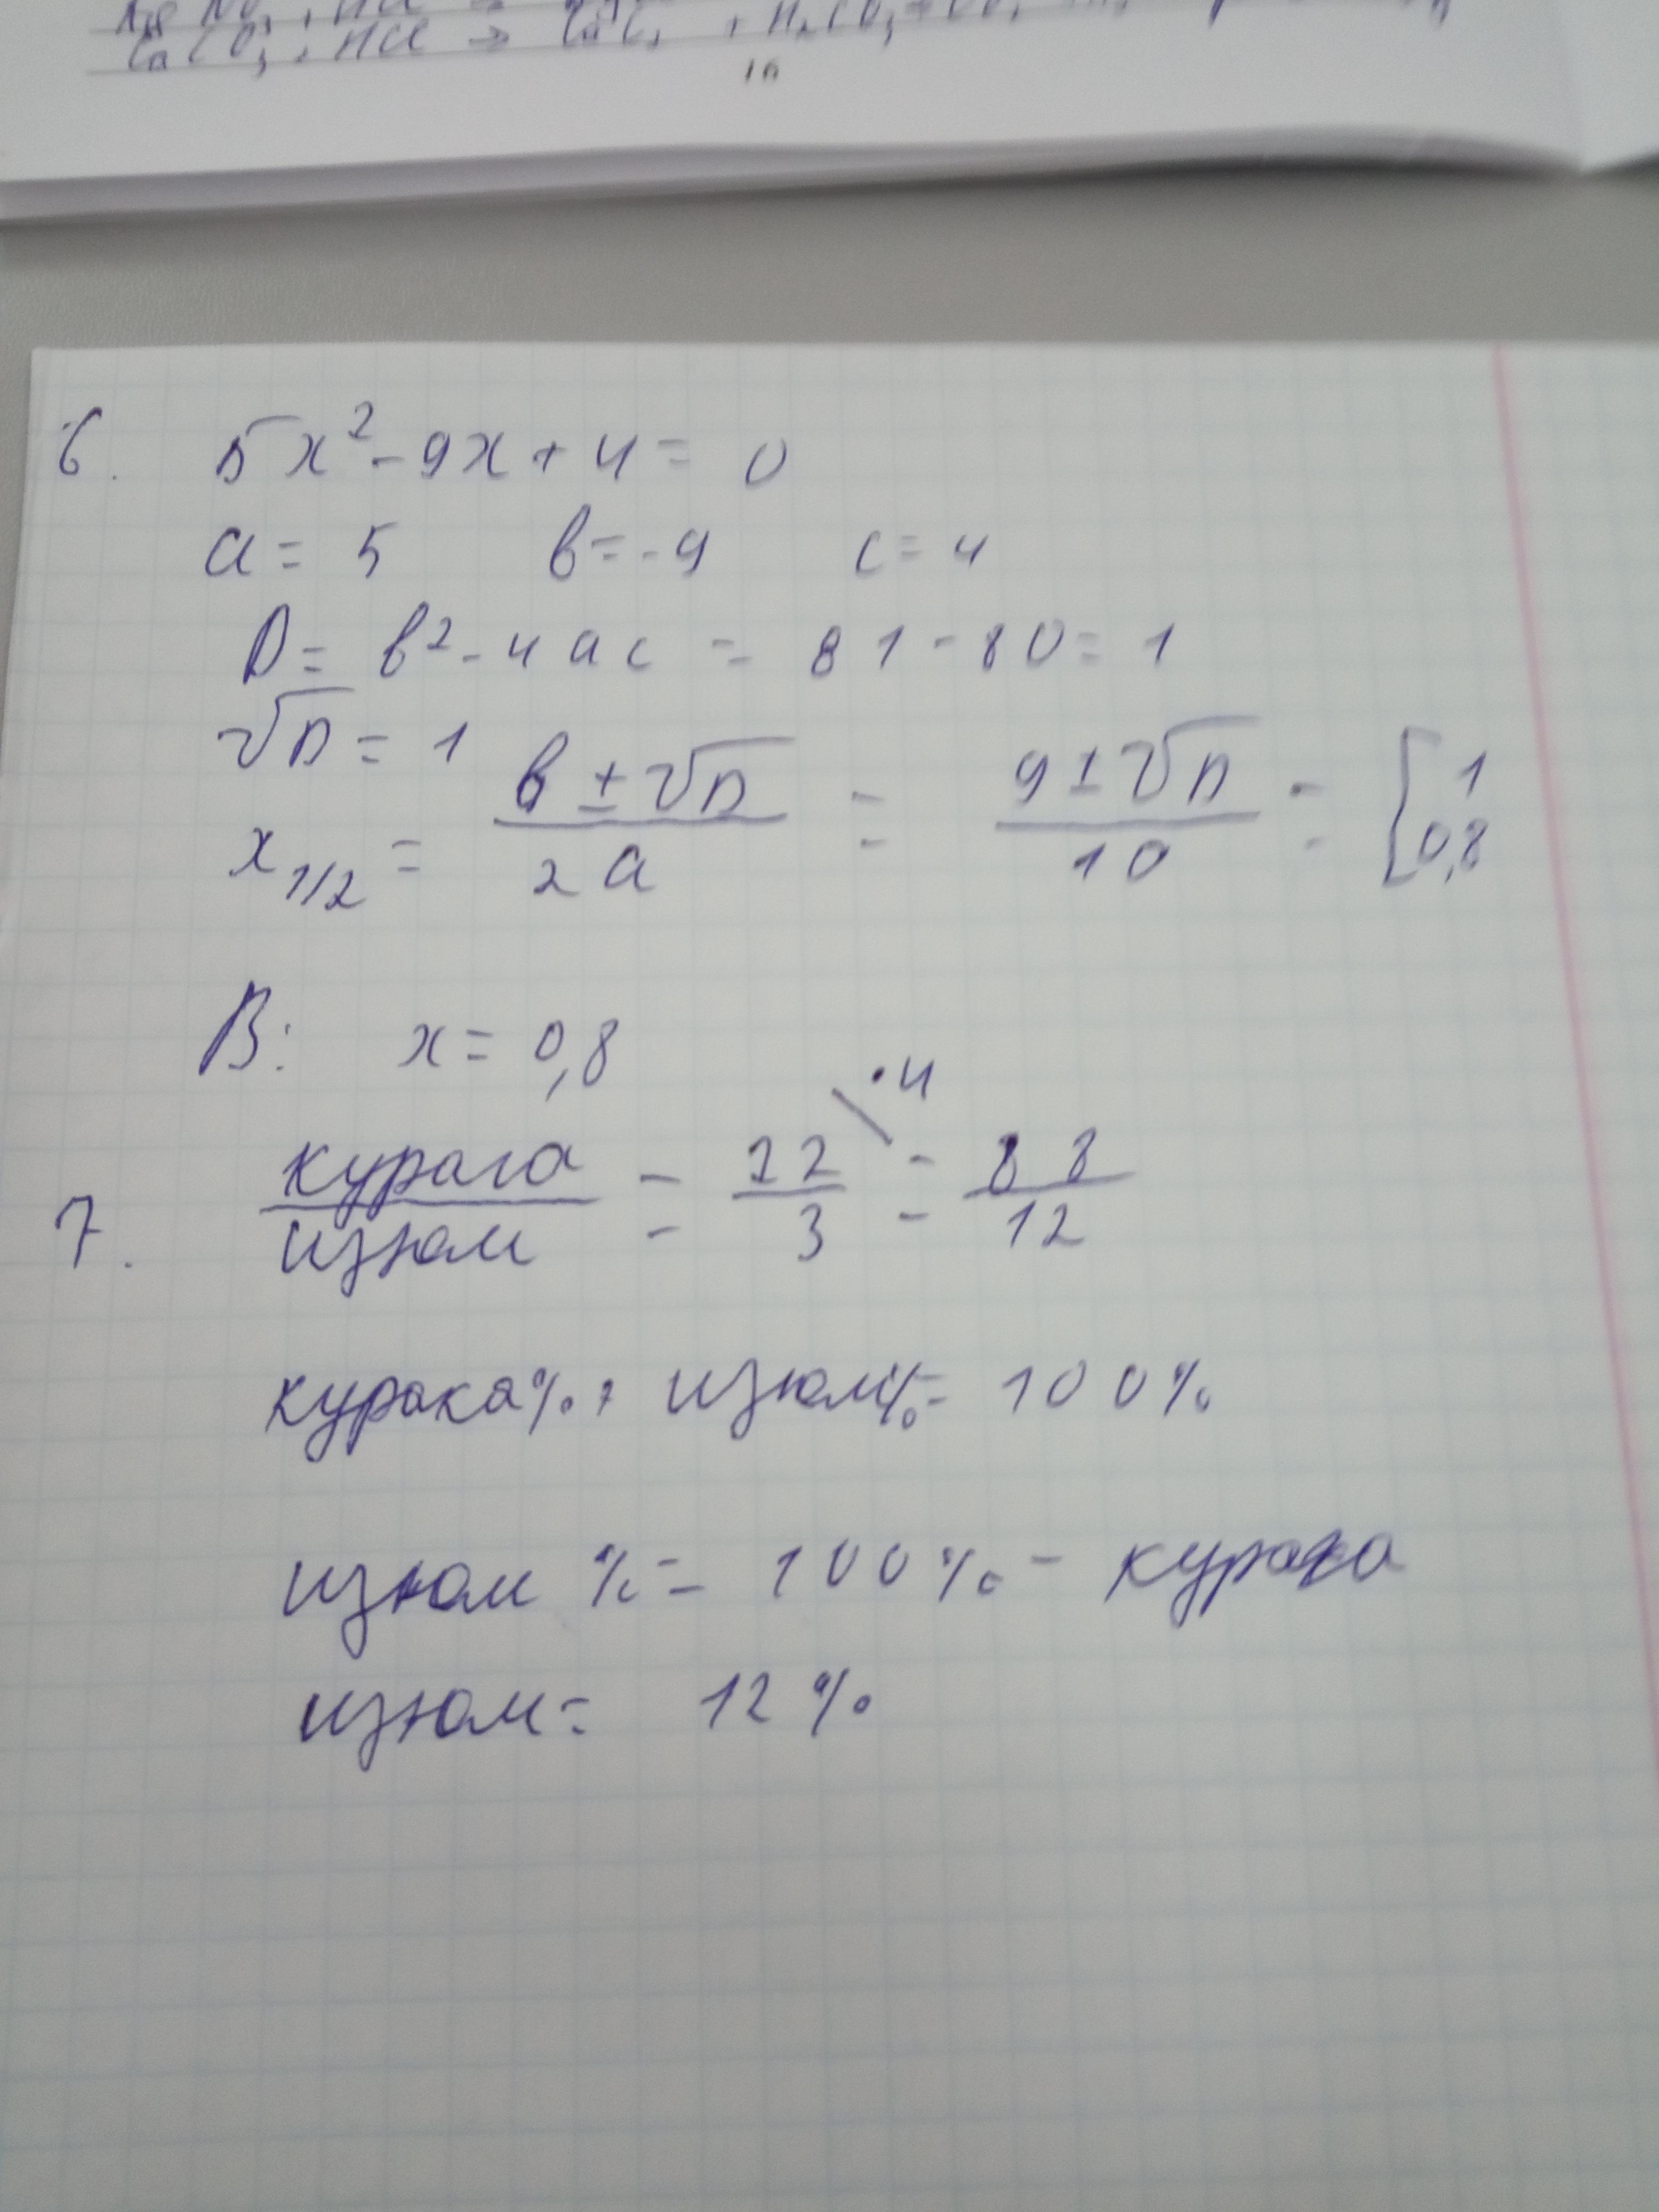 CaCO₃ + HCl → CaCl₂ + H₂CO₃
16
6. 5x² - 9x + 4 = 0
a = 5 в = -9 c = 4
D = в² - 4ac = 81 - 80 = 1
√D = 1
x₁/₂ = (в ± √D)/(2a) = (9 ± √D)/10 = [1 0,8
В: x = 0,8
7. курага/изюм = 22/3 \·4 = 88/12
курака% + изюм% = 100%
изюм % = 100% - курага
изюм = 12%